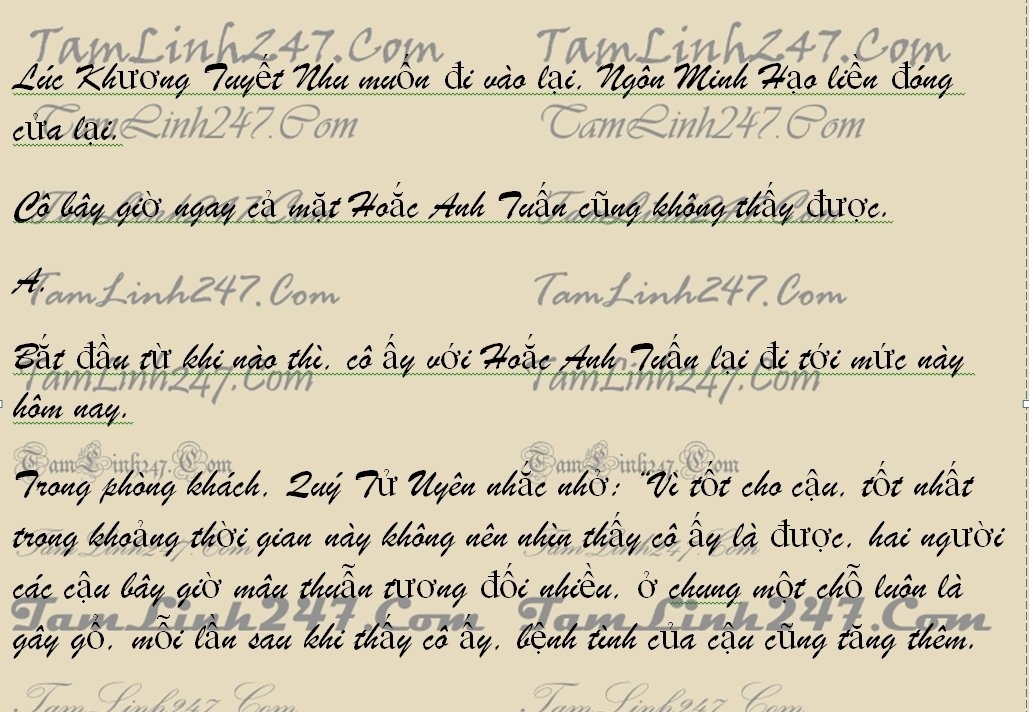 TamLinh247.Com TamLinh247.Com
Lúc Khương Tuyết Nhu muốn đi vào lại, Ngôn Minh Hạo liền đóng
cửa lại.
TamLinh247.Com TamLinh247.Com
TamLinh247.Com TamLinh247.Com
Cô bây giờ ngay cả mặt Hoắc Anh Tuấn cũng không thấy được.
A.
TamLinh247.Com TamLinh247.Com
Bắt đầu từ khi nào thì, cô ấy với Hoắc Anh Tuấn lại đi tới mức này
TamLinh247.Com TamLinh247.Com
hôm nay.
TamLinh247.Com TamLinh247.Com
Trong phòng khách, Quý Tử Uyên nhắc nhở: “Vì tốt cho cậu, tốt nhất
trong khoảng thời gian này không nên nhìn thấy cô ấy là được, hai người
TamLinh247.Com TamLinh247.Com
các cậu bây giờ mâu thuẫn tương đối nhiều, ở chung một chỗ luôn là
TamLinh247.Com TamLinh247.Com
gây gổ, mỗi lần sau khi thấy cô ấy, bệnh tình của cậu cũng tăng thêm.
TamLinh247.Com TamLinh247.Com